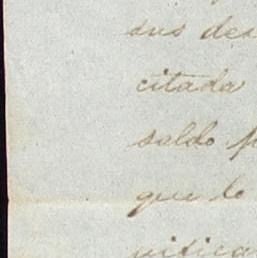 sus des
citada
saldo p
que lo